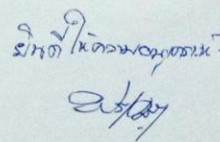 ยินดีให้ความอนุเคราะห์